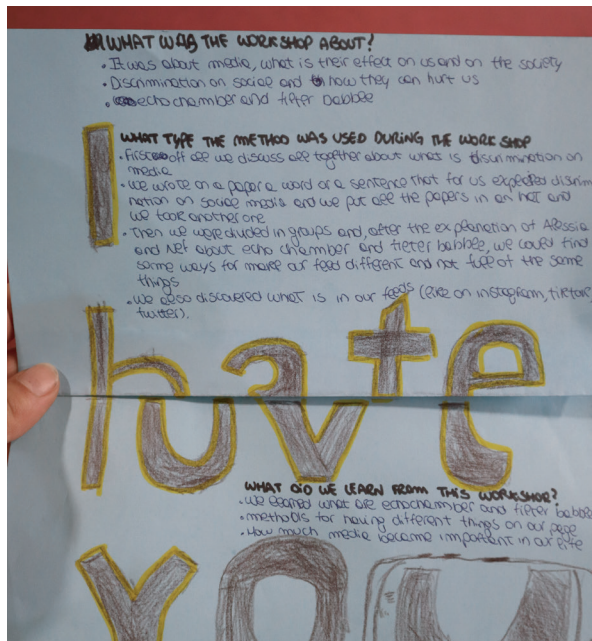 WHAT WAS THE WORKSHOP ABOUT?
• It was about media, what is their effect on us and on the society
• Discrimination on social and how they can hurt us
• echo chamber and filter babble
I
WHAT TYPE THE METHOD WAS USED DURING THE WORK SHOP
• First off all we discuss all together about what is discrimination on
media
• We wrote on a paper a word or a sentence that for us discrimi
nation on social media and we put all the papers in an hat and
we took another one
• Then we were divided in groups and, after the explanation of Alessia
and Nef about echo chamber and filter babble, we could find
some ways for make our feed different and not full of the same
things
• We also discovered what is in our feeds (like on instagram, tiktok,
twitter).
WHAT DID WE LEARN FROM THIS WORKSHOP?
• we learned what are echochamber and filter babble
• methods for having different things on our page
• How much media became important in our life
YOU